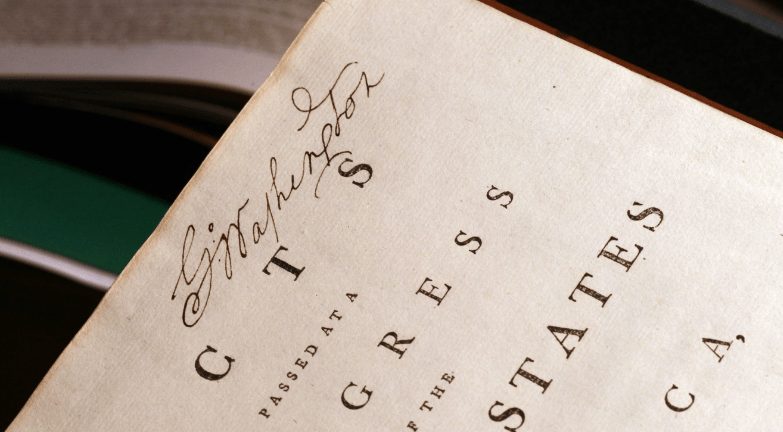 G:Washington
C T S
PASSED AT A
G R E S S
F THE
STATES
C A,